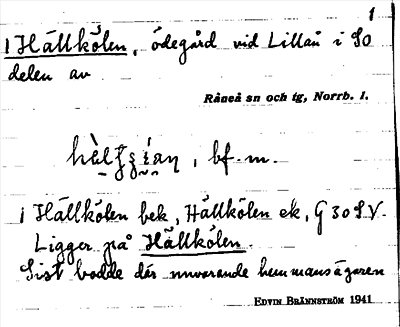 1
1 Hällkölen, ödegård vid Lillån i SO
delen av
Råneå sn och tg, Norrb. l.
, bf. m.
1 Hällkölen bek, Hällkölen ek, G 30 S V.
Ligger på Hällkölen.
Sist bodde där nuvarande hemmansägaren
EDVIN BRÄNNSTRÖM 1941